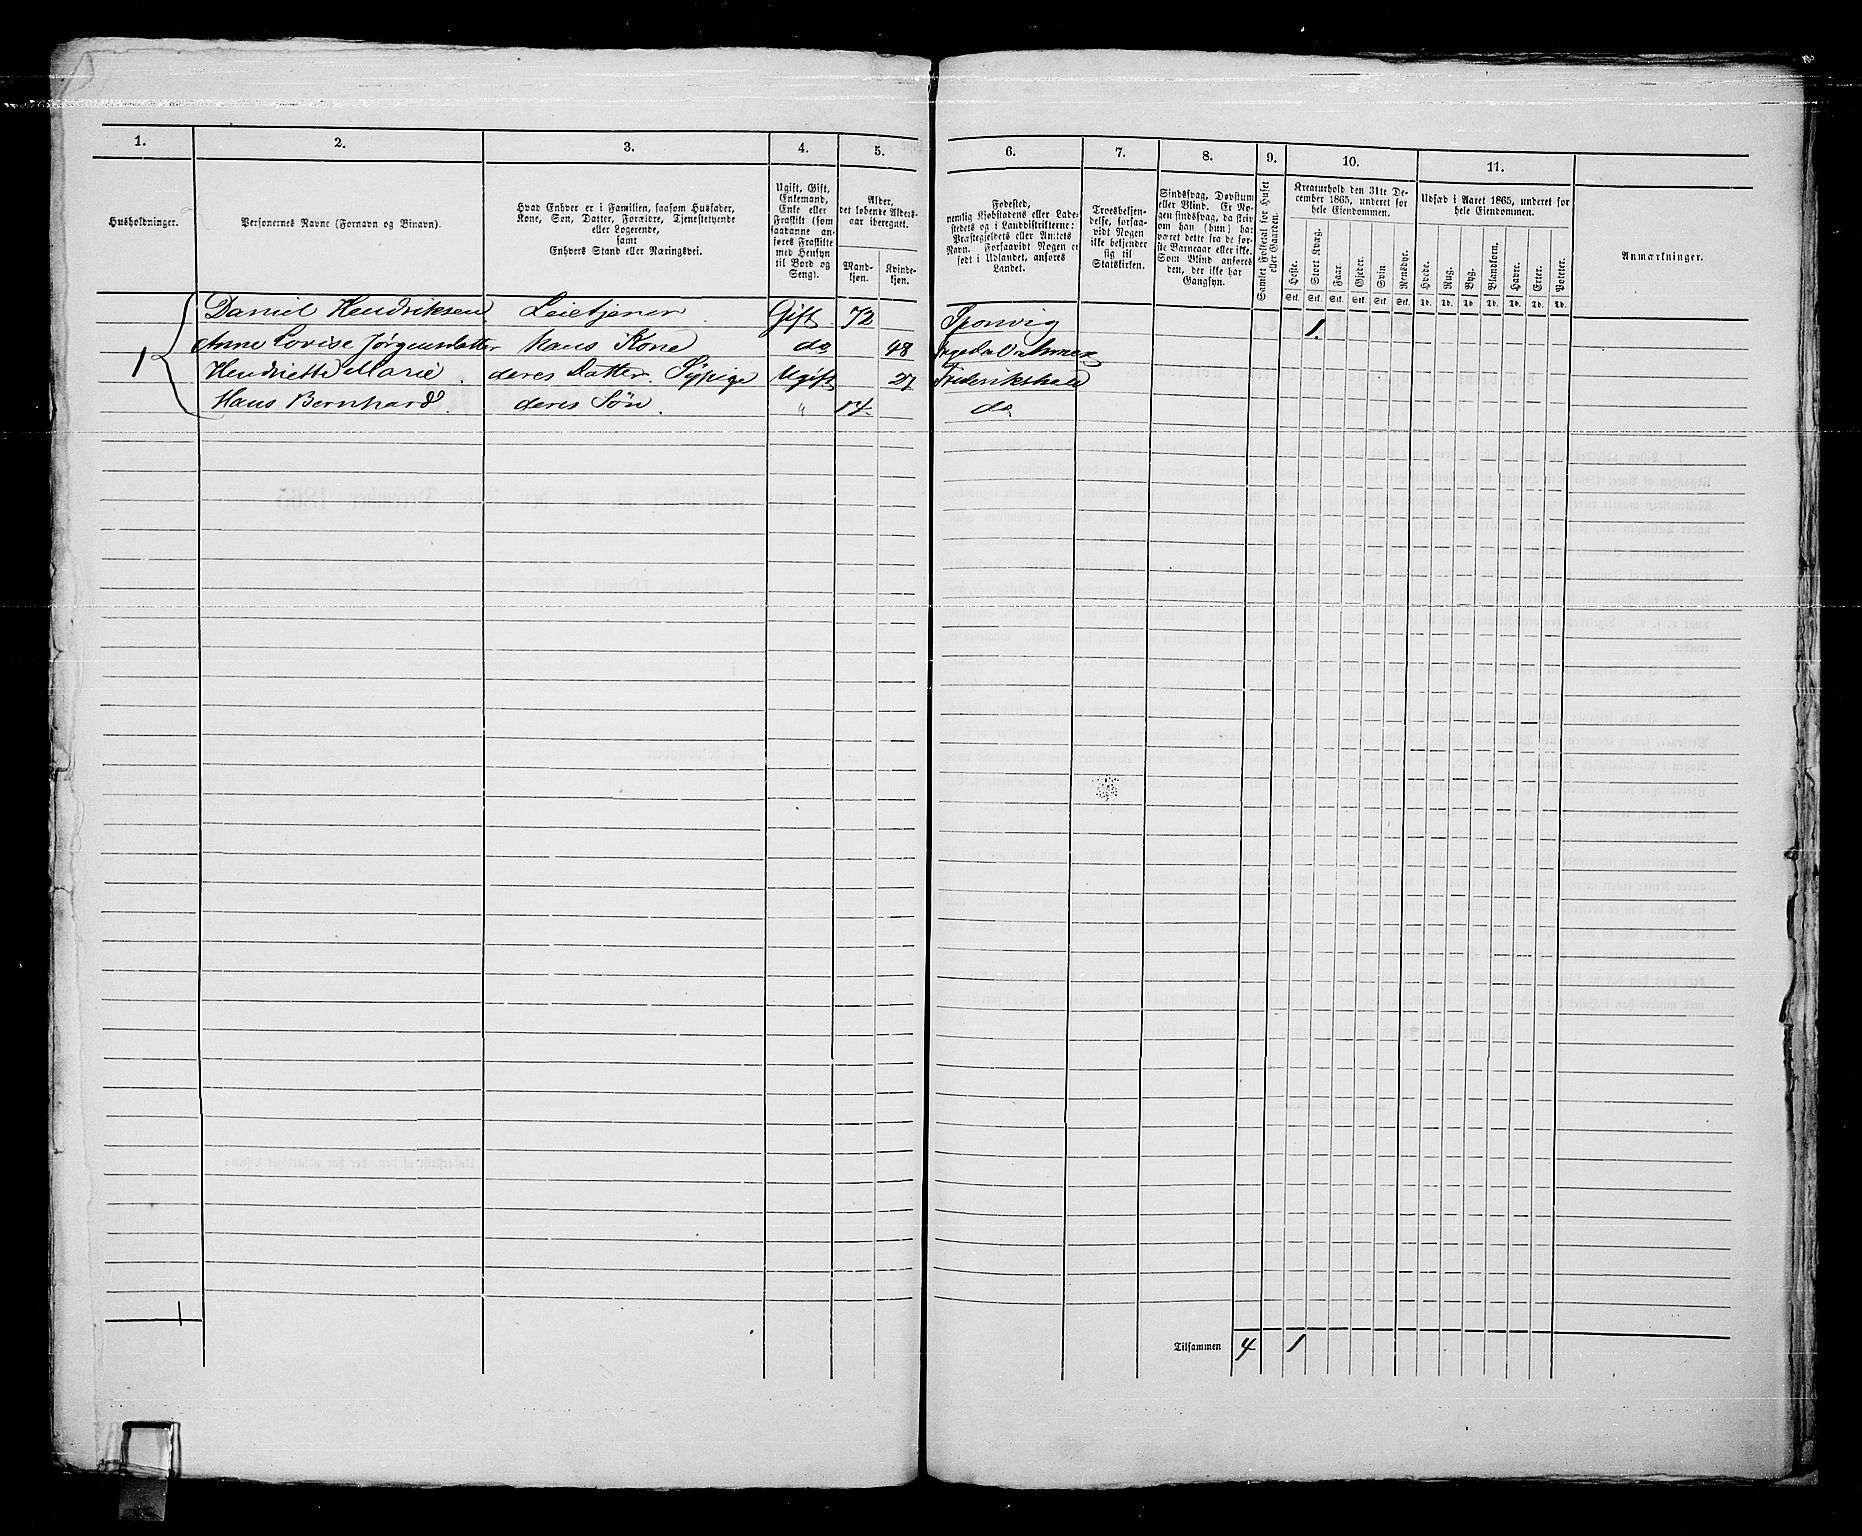 1. 2. 3. 4. 5. 6. 7. 8. 9. 10. 11.
Husholdninger.
Personernes Navne (Fornavn og Binavn).
Hvad Enhver er i Familien, saasom Husfader,
Kone, Søn, Datter, Forældre, Tjenestetyende
eller Logerende,
samt
Enhvers Stand eller Næringsvei.
Ugift, Gift,
Enkemand,
Enke eller
Fraskilt (som
saadanne an-
føres Fraskilte
med Hensyn
til Bord og
Seng).
Alder,
det løbende Alders-
aar iberegnet.
Mand-
kjøn.
Kvinde-
kjøn.
Fødested,
nemlig Kjøbstadens eller Lade-
stedets og i Landdistrikterne:
Præstegjeldets eller Amtets
Navn. Forsaavidt Nogen er
født i Udlandet, anføres
Landet.
Troesbekjen-
delse, forsaa-
vidt Nogen
ikke bekjender
sig til
Statskirken.
Sindssvag, Døvstum
eller Blind. Er No-
gen sindssvag, da skriv
om han (hun) har
været dette fra de før-
ste Barneaar eller ikke.
Som Blind anføres
den, der ikke har
Gangsyn.
Samlet Folketal for Huset
eller Gaarden.
Kreaturhold den 31te De-
cember 1865, underet for
hele Eiendommen.
Heste. Stort Kvæg. Faar. Gjeder. Svin Rensdyr.
Stk. Stk. Stk. Stk. Stk. Stk.
Udsæd i Aaret 1865, underet for
hele Eiendommen.
Hvede. Rug. Byg. Blandkorn. Havre. Erter. Poteter.
Td. Td. Td. Td. Td. Td. Td.
Anmærkninger.
1 Daniel Hendriksen. Leietjener. Gift. 72 Sponvig 1.
Anne Lovise Jørgensdatter hans Kone do 48
Hendriette Marie. deres Datter. Sypige Ugift 27 Frederikshald
Hans Bernhard. deres Søn. " 14 do
1
Tilsammen 4 1